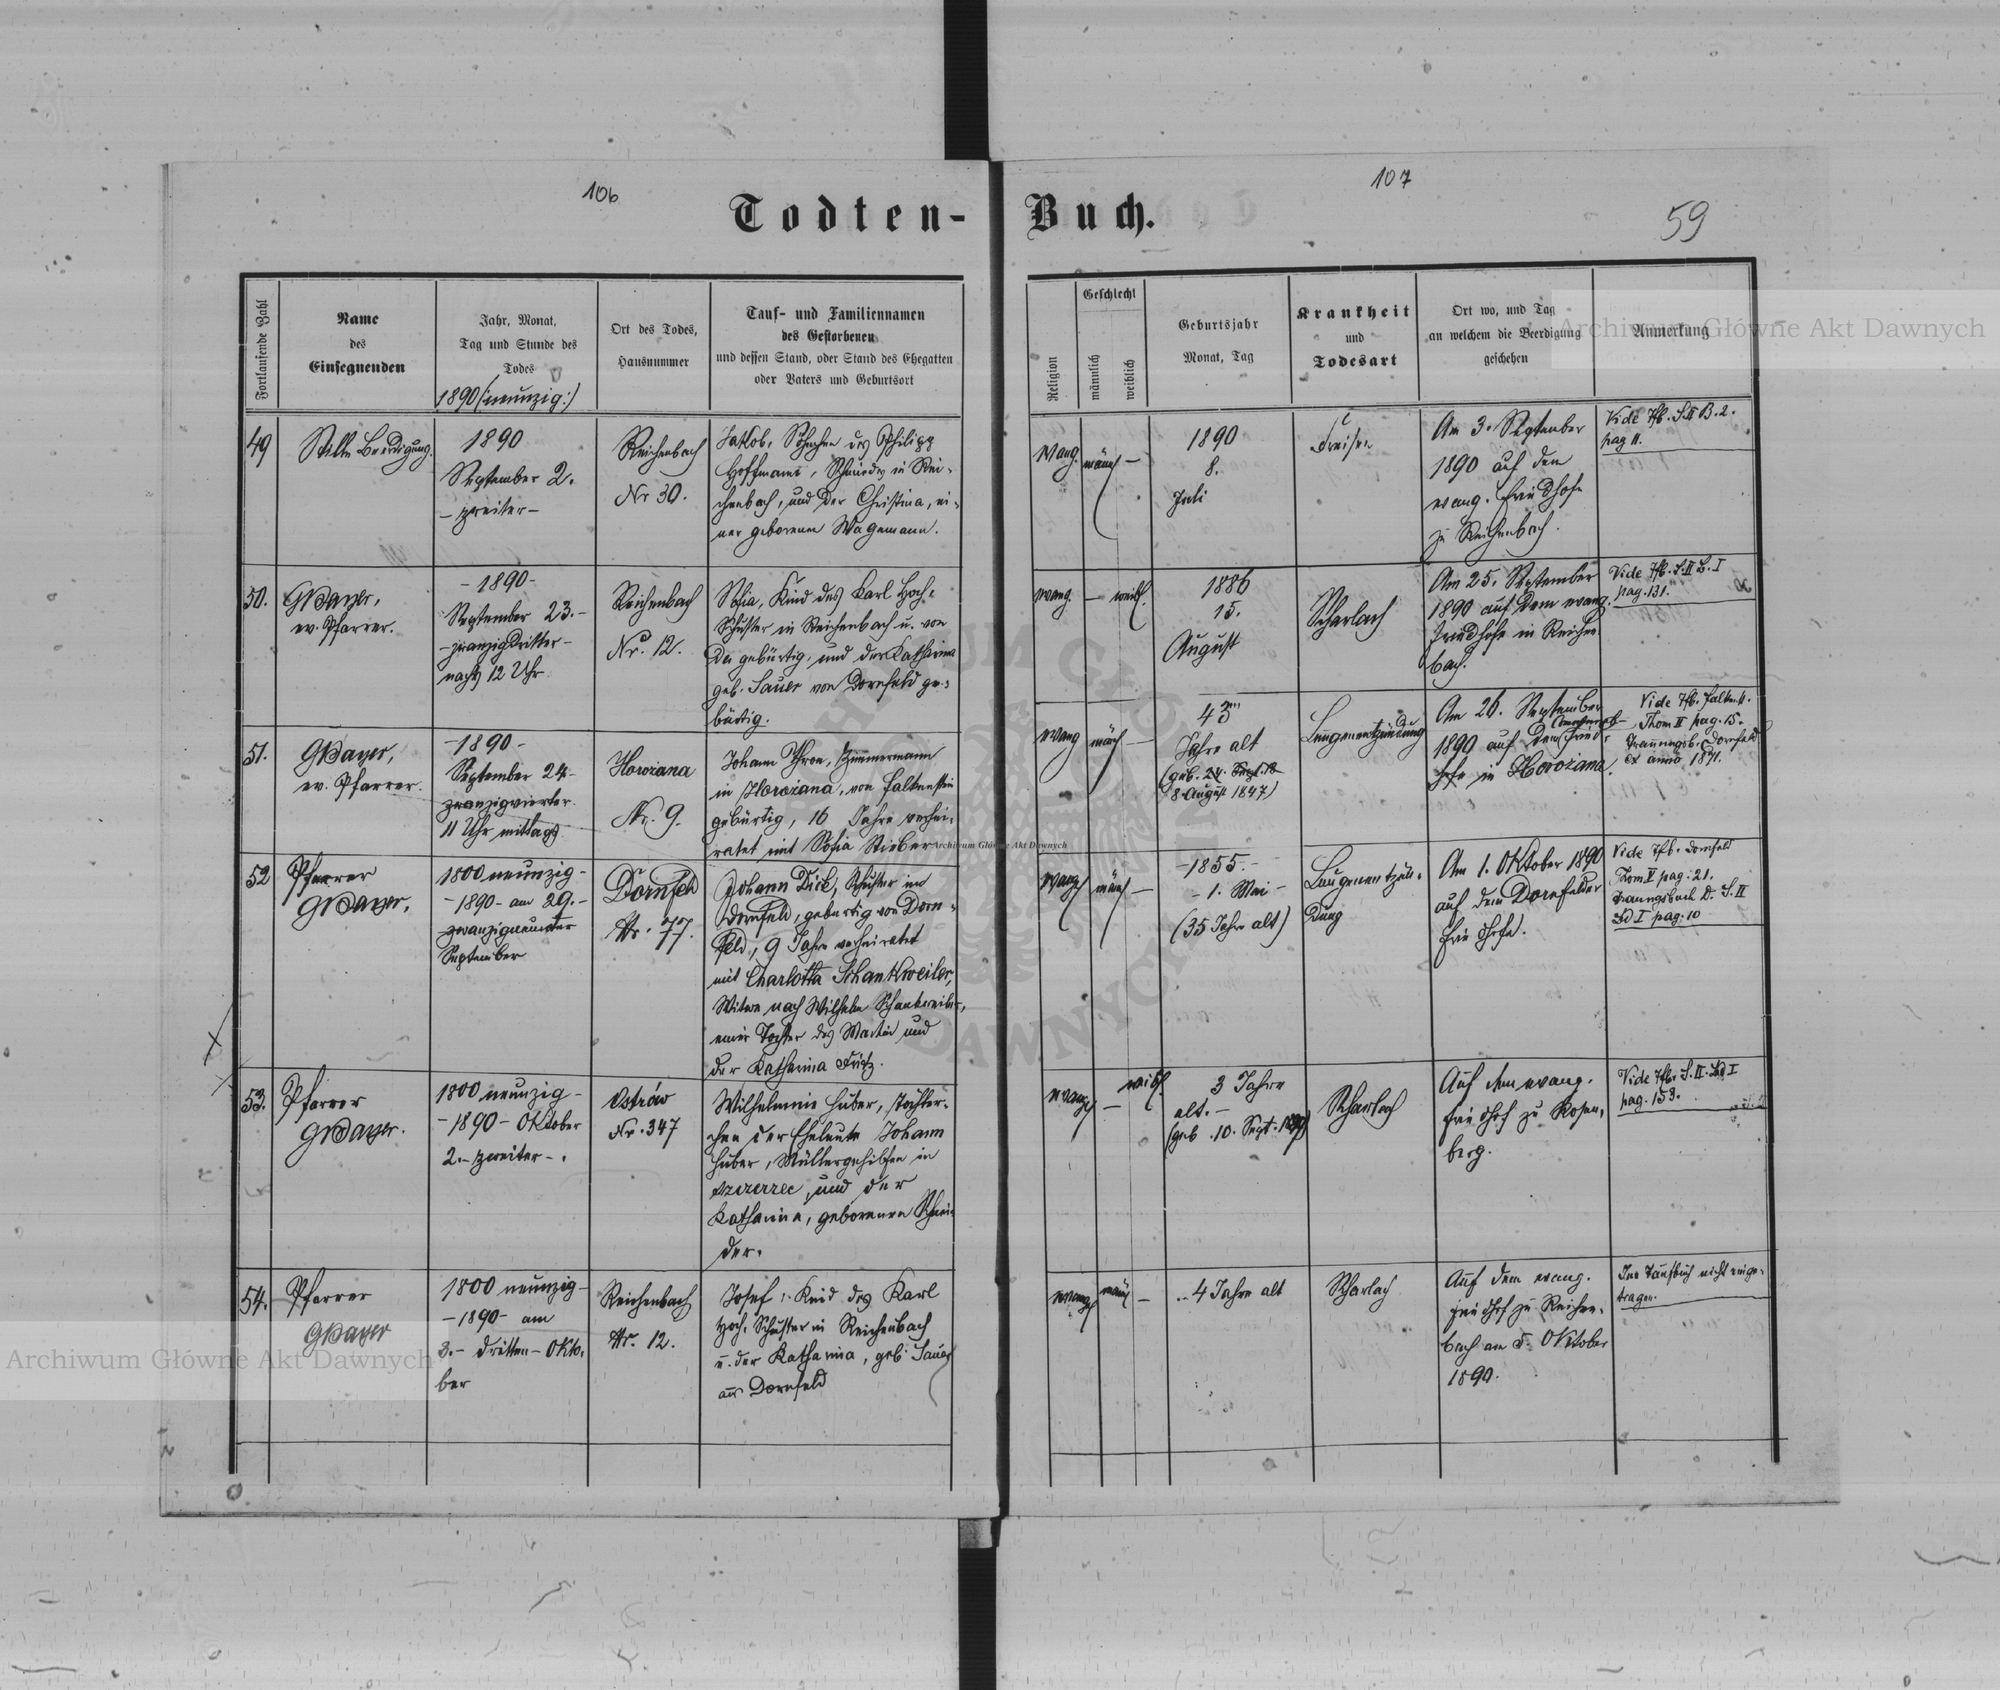 106
Todten-
Fortlaufende Zahl
Name
des
Einsegnenden
Jahr, Monat,
Tag und Stunde des
Todes
1890 (neunzig:)
Ort des Todes,
Hausnummer
Tauf- und Familiennamen
des Gestorbenen
und dessen Stand, oder Stand des Ehegatten
oder Vaters und Geburtsort
49
Stille Beerdigung.
1890
September 2.
- zweiter -
Reichenbach
Nr 30.
Jakob, Söhnchen des Philipp
Hoffmann, Schmiedes in Rei-
chenbach, und der Christina, ei-
ner geborenen Wagemann.
50.
GBayer,
ev. Pfarrer.
- 1890 -
September 23. -
- zwanzigdritter -
nachts 12 Uhr
Reichenbach
Nr. 12.
Sofia, Kind des Karl Hoch,
Schuster in Reichenbach u. von
da gebürtig, und der Katharina
geb. Sauer von Dornfeld ge-
bürtig.
51.
GBayer,
ev. Pfarrer.
- 1890 -
September 24 -
zwanzigvierter
11 Uhr mittags
Horożana
Nr. 9.
Johann Thron, Zimmermann
in Horożana, von Falkenstein
gebürtig, 16 Jahre verhei-
ratet mit Sofia Stieber
52
Pfarrer
GBayer,
1800 neunzig -
- 1890 - am 29. -
zwanzigneunter
September
Dornfeld
Nr. 77.
Johann Dick, Schuster in
Dornfeld, gebürtig von Dorn-
feld, 9 Jahre verheiratet
mit Charlotta Schankweiler,
Witwe nach Wilhelm Schankweiler,
einer Tochter des Martin und
der Katharina
53.
Pfarrer
GBayer.
1800 neunzig -
- 1890 - Oktober
2. - zweiter - .
Ostrów
Nr. 347
Wilhelmine Huber, Töchter-
chen der Eheleute Johann
Huber, Müllergehilfen in
Szczerzec, und der
Katharina, geborenen Schnei
der.
54.
Pfarrer
GBayer
1800 neunzig -
- 1890 - am
3. - dritten - Okto-
ber
Reichenbach
Nr. 12.
Josef, Kind des Karl
Hoch, Schuster in Reichenbach
u. der Katharina, geb. Sauer
aus Dornfeld
107
Buch.
59
Religion
Geschlecht
männlich
weiblich
Geburtsjahr
Monat, Tag
Krankheit
und
Todesart
Ort wo, und Tag
an welchem die Beerdigung
geschehen
Anmerkung
evang.
männl -
1890
8.
Juli
Fraisen
Am 3. September
1890 auf dem
evang. Friedhofe
zu Reichenbach.
Vide Tfb. S.II B. 2.
pag 11.
evang.
- weibl.
1886
15.
August
Scharlach
Am 25. September
1890 auf dem evang.
Friedhofe in Reichen
bach.
Vide Tfb. S.II B. I
pag. 131.
evang
männl -
43
Jahre alt
(geb. 24. Sept. 18
8. August 1847)
Lungenentzündung
Am 26. September
1890 auf dem Fried-
hofe in Horożana.
Vide Tfb. Falken.
Thom II pag. 15.
Trauungsb. Dornfeld
ex anno 1871.
evang
männl -
- 1855. -
- 1. Mai -
(35 Jahre alt)
Lungenentzün-
dung
Am 1. Oktober 1890
auf dem Dornfelder
Friedhofe.
Vide Tfb. Dornfeld
Tom II pag: 21.
Trauungsbuch D. S. II
Bd I pag: 10
evang
- weibl.
3 Jahre
alt. -
(geb. 10. Sept.
Scharlach
Auf dem evang.
Friedhof zu Rosen-
berg.
Vide Tfb. S. II Bd I
pag. 153.
evang
männl -
4 Jahre alt
Scharlach
Auf dem evang.
Friedhof zu Reichen-
bach am 5. Oktober
1890.
Im Taufbuch nicht einge-
tragen.
Archiwum Główne Akt Dawnych
Archiwum Główne Akt Dawnych
Archiwum Główne Akt Dawnych